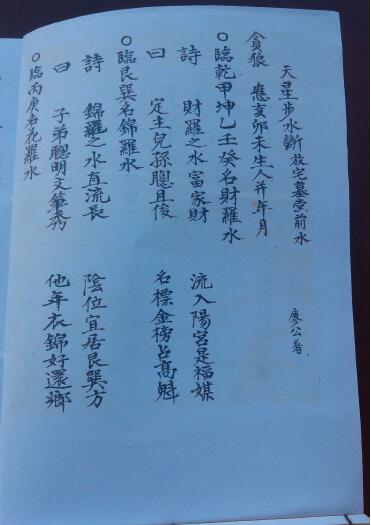 天星步水斷 放宅墓堂前水
廖公著
貪狼 應亥卯未生人并年月
○臨乾甲坤乙壬癸名財羅水
詩 財羅之水富家財 流入陽宮是福媒
曰 定主兒孫聰且俊 名標金榜占高魁
○臨艮巽名錦羅水
詩 錦羅之水直流長 陰位宜居艮巽方
曰 子弟聰明文筆秀 他年衣錦好還鄉
○臨丙庚名花羅水